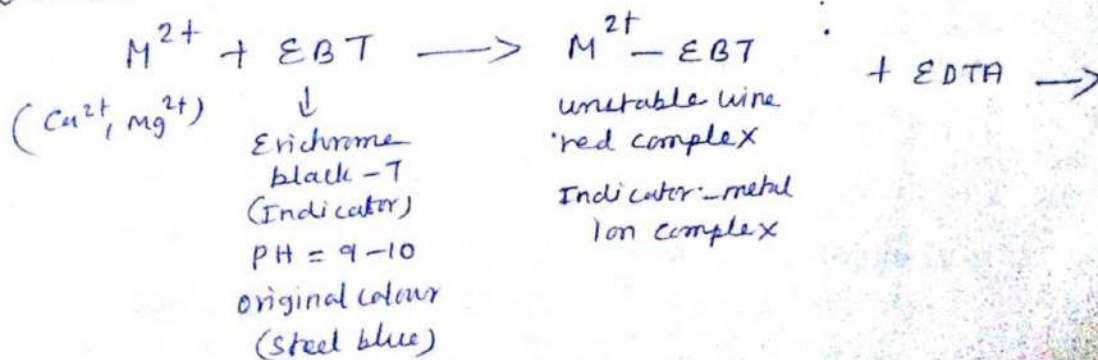 M²⁺ + EBT ⟶ M²⁺ – EBT + EDTA ⟶
(Ca²⁺, Mg²⁺)
↓
Erichrome
black – T
(Indicator)
PH = 9–10
original colour
(Steel blue)
unstable wine
red complex
Indicator – metal
Ion complex